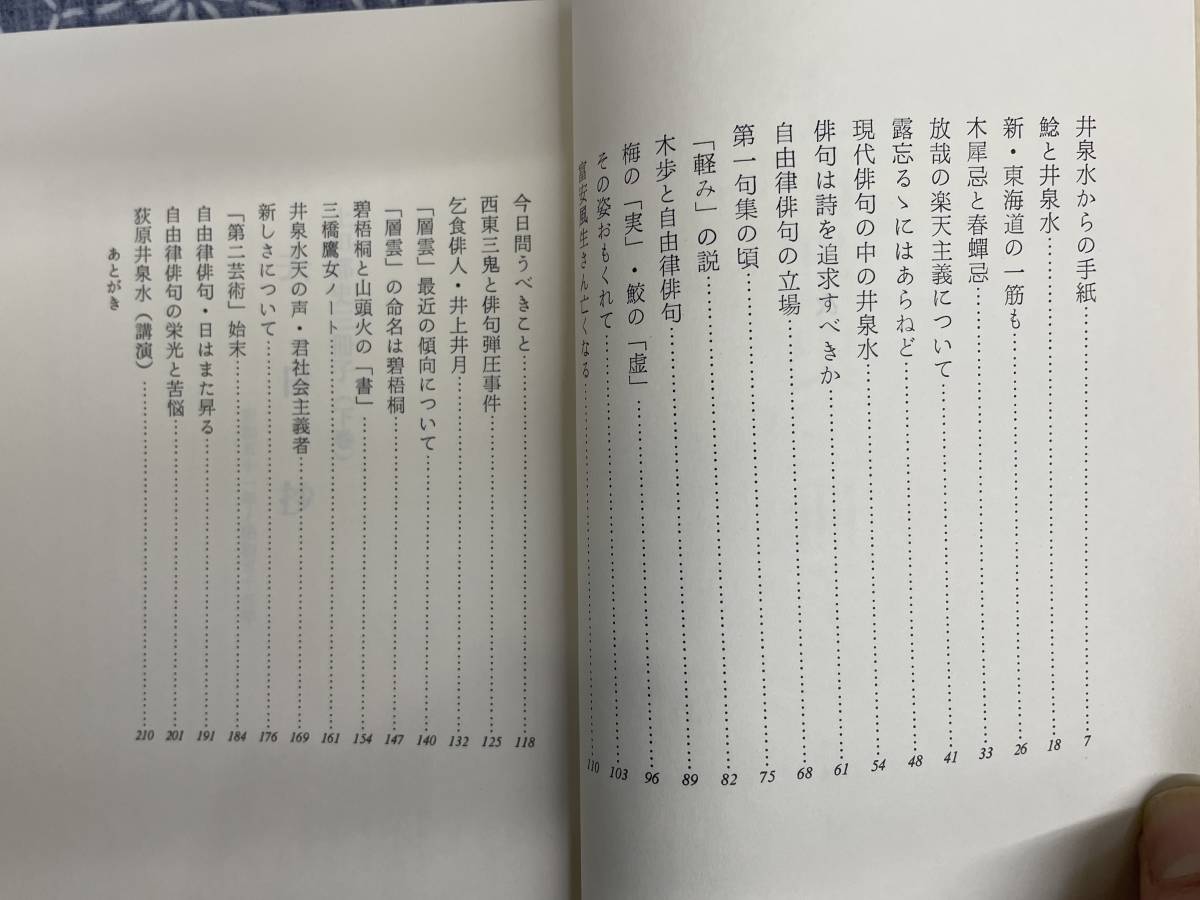 井泉水からの手紙……7
鯰と井泉水……18
新・東海道の一筋も……26
木犀忌と春蟬忌……33
放哉の楽天主義について……41
露忘るゝにはあらねど……48
現代俳句の中の井泉水……54
俳句は詩を追求すべきか……61
自由律俳句の立場……68
第一句集の頃……75
「軽み」の説……82
木歩と自由律俳句……89
梅の「実」・鮫の「虚」……96
その姿おもくれて……103
富安風生さん亡くなる……110
今日問うべきこと……118
西東三鬼と俳句弾圧事件……125
乞食俳人・井上井月……132
「層雲」最近の傾向について……140
「層雲」の命名は碧梧桐……147
碧梧桐と山頭火の「書」……154
三橋鷹女ノート……161
井泉水天の声・君社会主義者……169
新しさについて……176
「第二芸術」始末……184
自由律俳句・日はまた昇る……191
自由律俳句の栄光と苦悩……201
荻原井泉水（講演）……210
あとがき